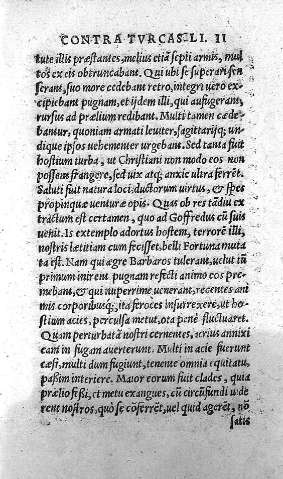 CONTRA TVRCAS LI. II
tute illis præstantes, melius etiã septi armis, mul
tos ex eis obtruncabant. Qui ubi se superari sen
serant, suo more cedebant retro, integri uero ex
cipiebant pugnam, et ijdem illi, qui aufugerant,
rursus ad prælium redibant. Multi tamen cæde
bantur, quoniam armati leuiter, sagittarijq; un
dique ipsos uehementer urgebam. Sed tanta fuit
hostium turba, ut Christiani non modo eos non
possent frangere, sed uix atq; anxie ultra ferrẽt.
Saluti fuit natura loci: ductorum uirtus, & spes
propinquæ uenturæ opis. Quas ob res tãdiu ex
tractum est certamen, quo ad Goffredus cũ suis
uenit. Is extemplo adortus hostem, terrorẽ illi,
nostris lætitiam cum fecisset, belli Fortuna muta
ta est. Nam qui ægre Barbaros tulerant, uelut iñ
primum inirent pugnam refecti animo eos pre=
mebant, & qui nuperrime uenerant, recentes ani
mis corporibusq;, ita feroces insurrexere, ut ho=
stium acies, perculsa metu, tota penè fluctuaret.
Quam perturbatã nostri cernentes, acrius annixi
eam in fugam auerterunt. Multi in acie fuerunt
cæsi, multi dum fugiunt, tenente omnia equitatu,
passim interiere. Maior eorum fuit clades, quia
prælio fessi, et metu exangues, cũ circũfundi ui de
rent nostros, quò se cõferrẽt, uel quid agerẽt, nõ
satis